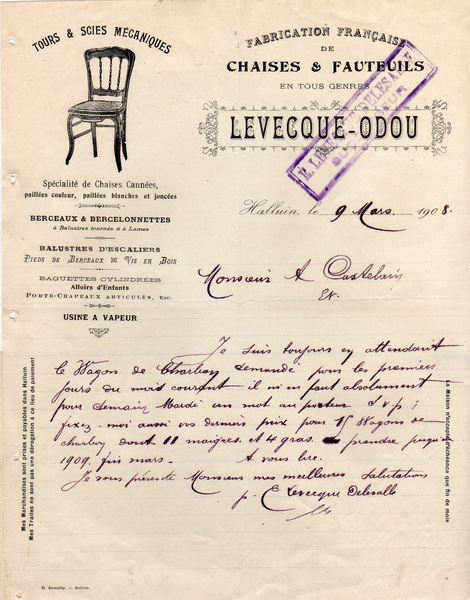 TOURS & SCIES MÉCANIQUES
FABRICATION FRANÇAISE
DE
CHAISES & FAUTEUILS
EN TOUS GENRES
LEVECQUE-ODOU
Spécialité de Chaises Cannées,
paillées couleur, paillées blanches et joncées
BERCEAUX & BERCELONNETTES
à Balustres tournés & à Lames
BALUSTRES D'ESCALIERS
PIEDS DE BERCEAUX VIS EN BOIS
BAGUETTES CYLINDRÉES
Alloirs d'Enfants
PORTE-CHAPEAUX ARTICULÉS, ETC.
USINE A VAPEUR
Halluin, le 9 Mars 1908.
Monsieur A Castelain
Je suis toujours en attendant
le Wagon de Charbon demandé pour les premiers
jours du mois courant il m'en faut absolument
pour demain Mardi un mot au porteur S V P;
fixez-moi aussi vos derniers prix pour 15 Wagons de
charbon dont 11 maigres et 4 gras. à prendre jusqu'à
1909 fin mars. A vous lire.
Je vous présente Monsieur mes meilleures salutations
p. E Levecque Delesalle
Mes Marchandises sont prises et payables dans Halluin
Mes Traites ne sont pas une dérogation à ce lieu de paiement